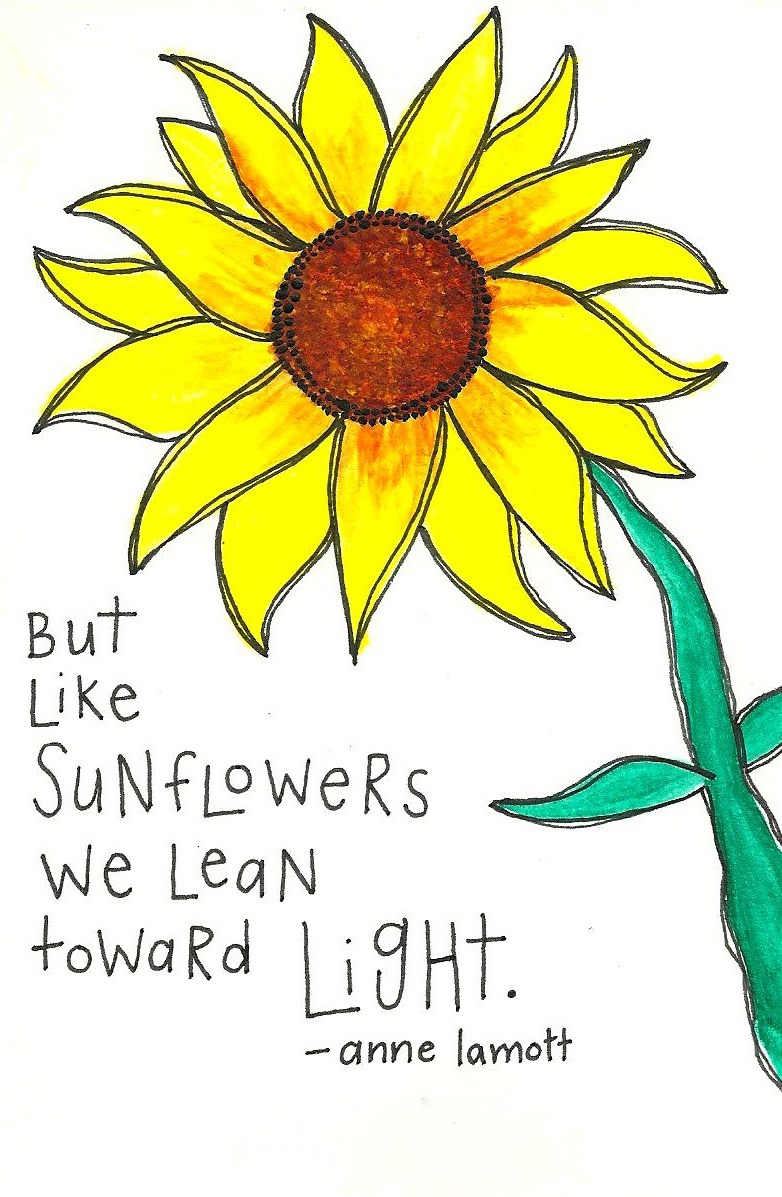 But
Like
SuNfLoweRs
we LeaN
towaRd LigHt.
- anne lamott